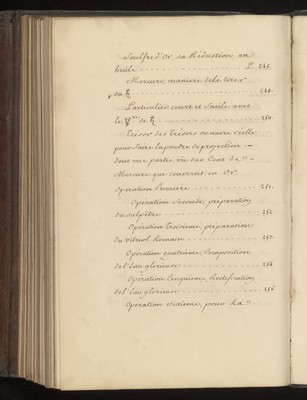 Soulfre d'or sa Réduction en
huile P. 245.
Mercure, maniere de le tirer
du ♄ 248.
Particulier court et facile avec
le de ♄ 250.
Trésor des Trésors ou œuvre réelle
pour faire la poudre de projection
dont une partie va sur Cent de
Mercure qui convertit en Or.
Operation Premiere 251.
Operation Seconde, préparation
du salpêtre 252
Operation Troisieme, préparation
du vitriol Romain 252.
Operation quatrieme, Composition
de l'Eau glorieuse 254
Operation Cinquieme, Rectification
de l'Eau glorieuse 256
Operation sixieme, pour la